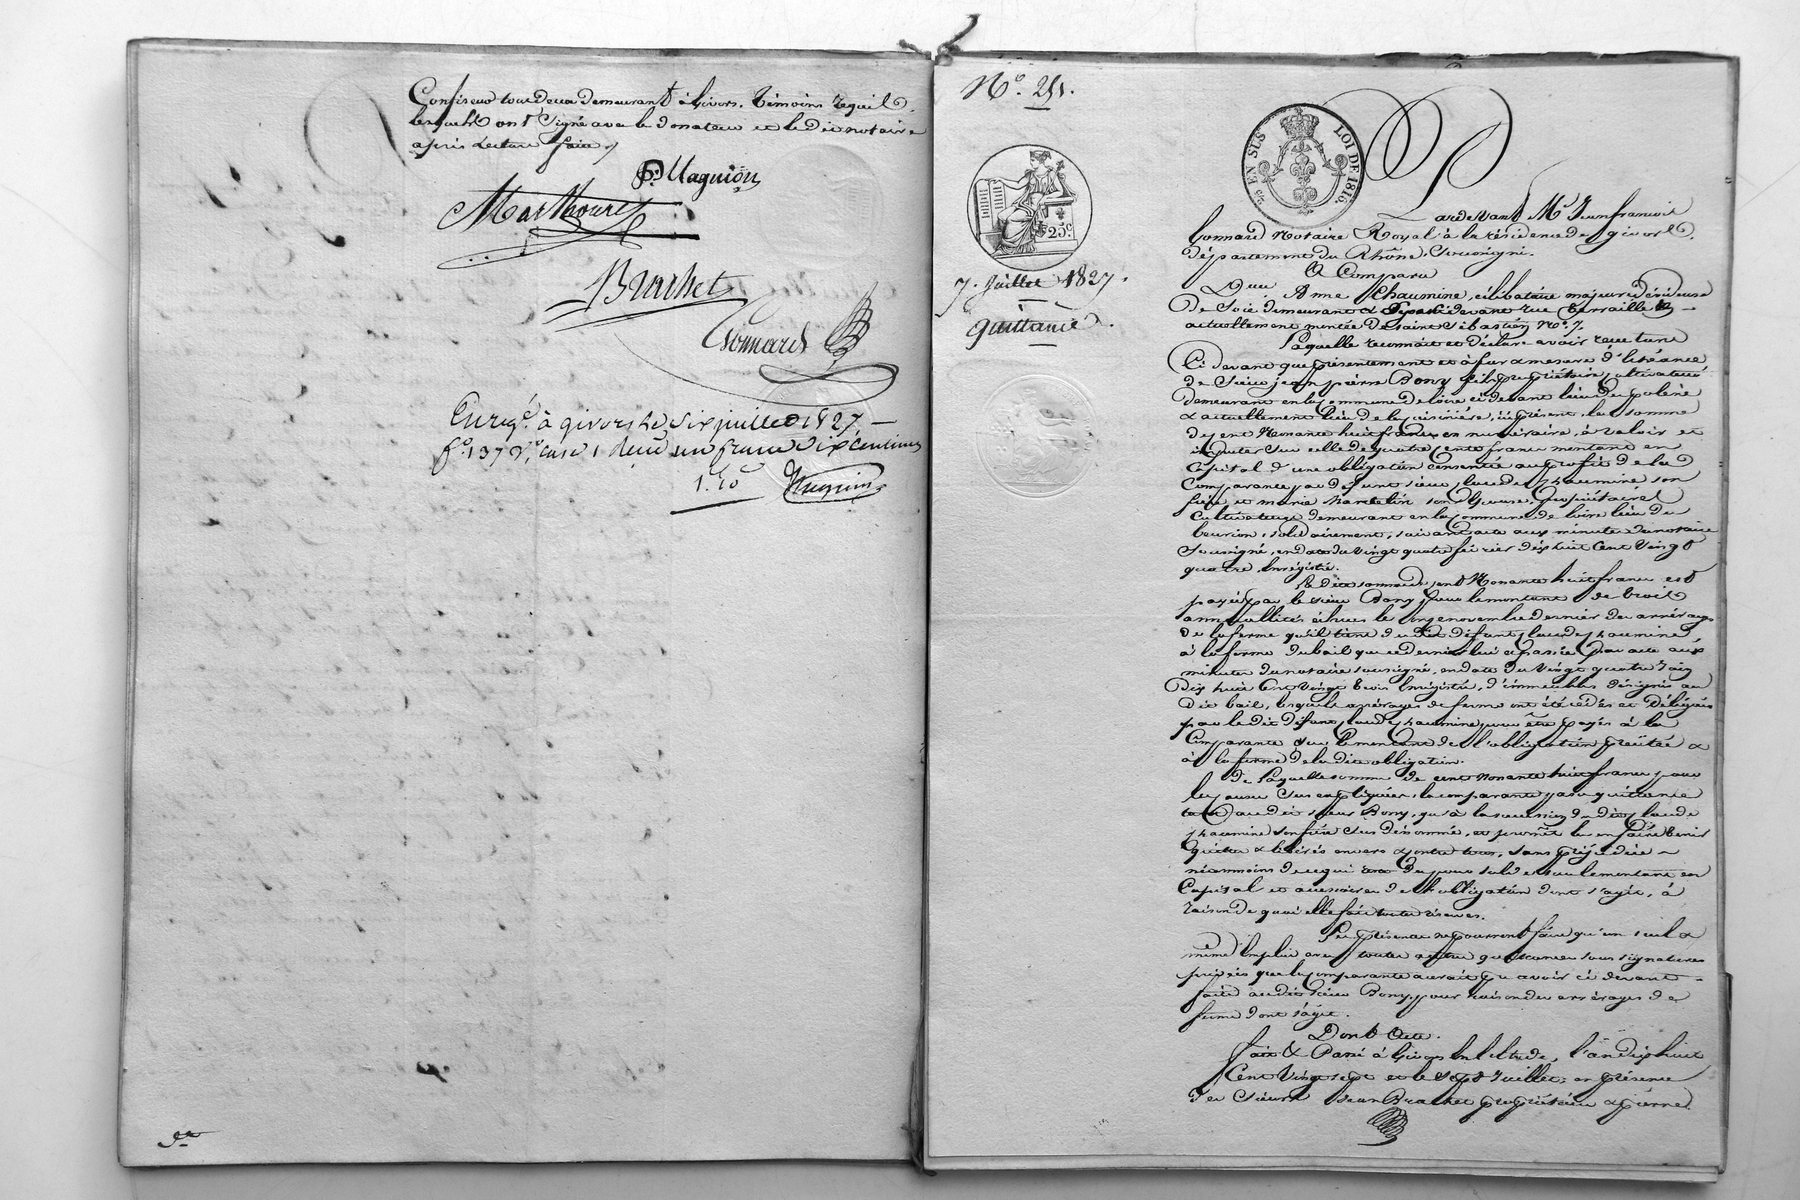 Confiseur tous deux demeurant à Givors. Témoins requis
lesquels ont signé avec le donateur et le dit notaire
après lecture faite
P. Magnion
Marthoure
Brachet
Bonnard
Enreg.é à givors le Six juillet 1827
f.o 137 v.o case 1 Reçu un franc dix centimes
1.10
N.o 251.
EN SUS
LOI DE 1816
25c.
7. Juillet 1827.
quittance.
Pardevant M.e Jean françois
Bonnard Notaire Royal à la résidence de givors,
département du Rhône, Soussigné.
A Comparu
D.lle Anne Chaumine, célibataire majeure dévideuse
De Soie demeurant à ci devant rue Terraille
actuellement montée de Saint Sébastien No. 7.
Laquelle reconnait et déclare avoir reçu tant
Ci devant que présentement et à fur à mesure d'échéance
de Sieur jean pierre Bony fils propriétaire cultivateur
demeurant en la commune de loire ci devant lieu de
& actuellement lieu de, ici présent, la somme
de cent Nonante huit francs en numéraire, à valoir et
imputer sur celle de quatre cents francs montant en
Capital d'une obligation consentie au profit de la
Comparante par défunt sieur claude chaumine son
frère et marie son épouse, propriétaires
cultivateurs demeurant en la commune de loire lieu du
, solidairement, suivant acte aux minutes du notaire
Soussigné, en date du vingt quatre février dix huit Cent Vingt
quatre, Enregistré.
La dite somme de cent Nonante huit francs est
payée par le sieur Bony pour le montant de trois
annuallités échues le onze novembre dernier des arrérages
de la ferme qu'il tient du dit défunt claude chaumine,
à la forme du bail que ce dernier lui a passé par acte aux
minutes du notaire soussigné, en date du vingt quatre Juin
Dix huit Cent Vingt trois Enregistré, d'immeubles désignés au
Dit bail, lesquels arrérages de ferme ont été cédés et Délégués
par le dit défunt claude chaumine pour être payés à la
Comparante sur le montant de l'obligation précitée &
à la forme de la dite obligation.
de laquelle somme de cent nonante huit francs pour
les causes sus expliquées, la comparante passe quittance
tant au dit sieur Bony, qu'à la succession du dit claude
chaumine son frère sus dénommé, et promet les en faire tenir
quittes & libérés envers & contre tous, sans préjudice
néanmoins de ce qui est dû pour solde sur le montant en
Capital et accessoires de l'obligation dont s'agit, à
raison de quoi elle fait toutes réserves.
Les présentes ne pourront faire qu'un seul &
même Emploi avec toutes autres quittances sous signatures
privées que la comparante aurait pu avoir ci devant
fait au dit sieur Bony pour raison des arrérages de
ferme dont s'agit.
Dont Acte.
fait & Passé à Givors En l'étude, l'an dix huit
Cent Vingt sept et le sept Juillet, en présence
des sieurs Jean Brachet propriétaire & pierre